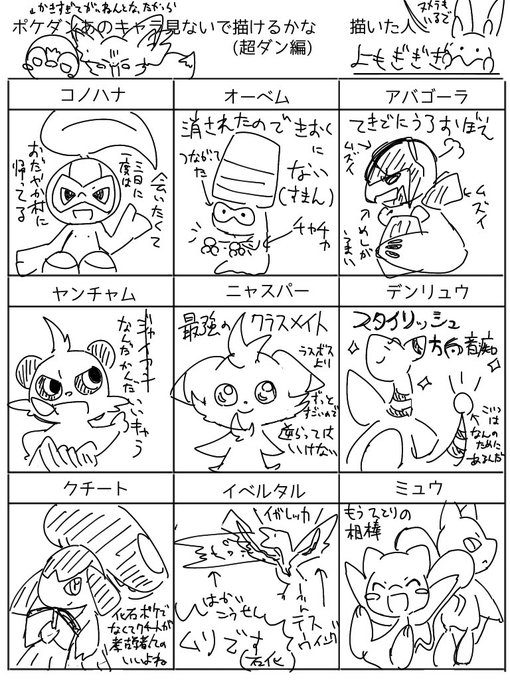 ポケダンあのキャラ見ないで描けるかな
(超ダン編)
描いた人
よもぎぎぎ
コノハナ
オーベム
アバゴーラ
会いたくて
三日に
一度は
おだやか村に
帰ってる
消されたのできおくに
ない
(すまん)
つながてた
チャチャ
てきでにうろおぼえ
ムズイ
ムズイ
めしが
うまい
ヤンチャム
ニャスパー
デンリュウ
ジャイアン
なんだかんだいいキャラ
最強のクラスメイト
ラスボス
より
ずっと
すごいので
逆らっては
いけない
スタイリッシュ
方向音痴
こいつは
なんの
ために
あるんだ
クチート
イベルタル
ミュウ
化石ポケで
なくてクチートが
考古学者ての
いいよね
イガレッカ
はかい
こうせん
デス
ウィング
ムリです
石化
もうひとりの
相棒